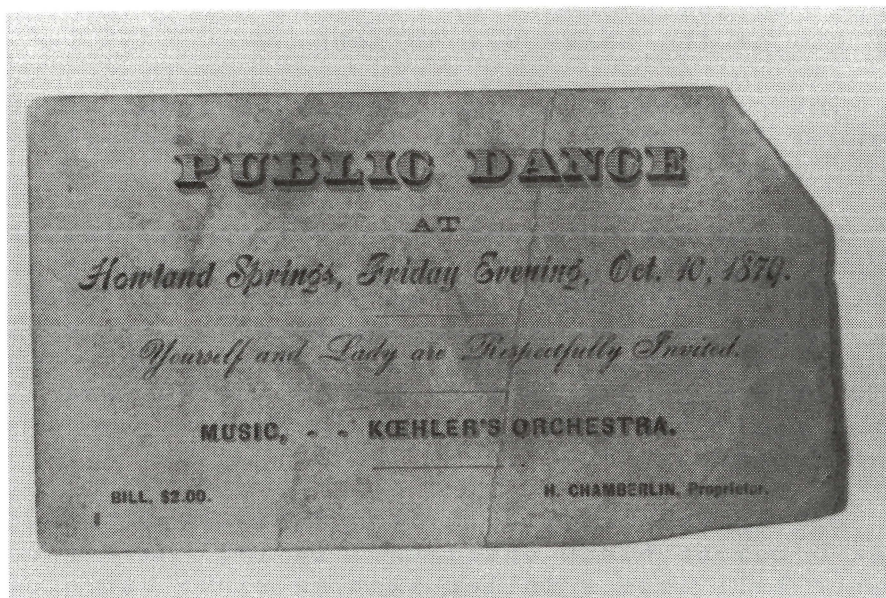 PUBLIC DANCE
AT
Howland Springs, Friday Evening, Oct. 10, 1879.
Yourself and Lady are Respectfully Invited.
MUSIC, - - KŒHLER'S ORCHESTRA.
BILL, $2.00.
H. CHAMBERLIN, Proprietor.